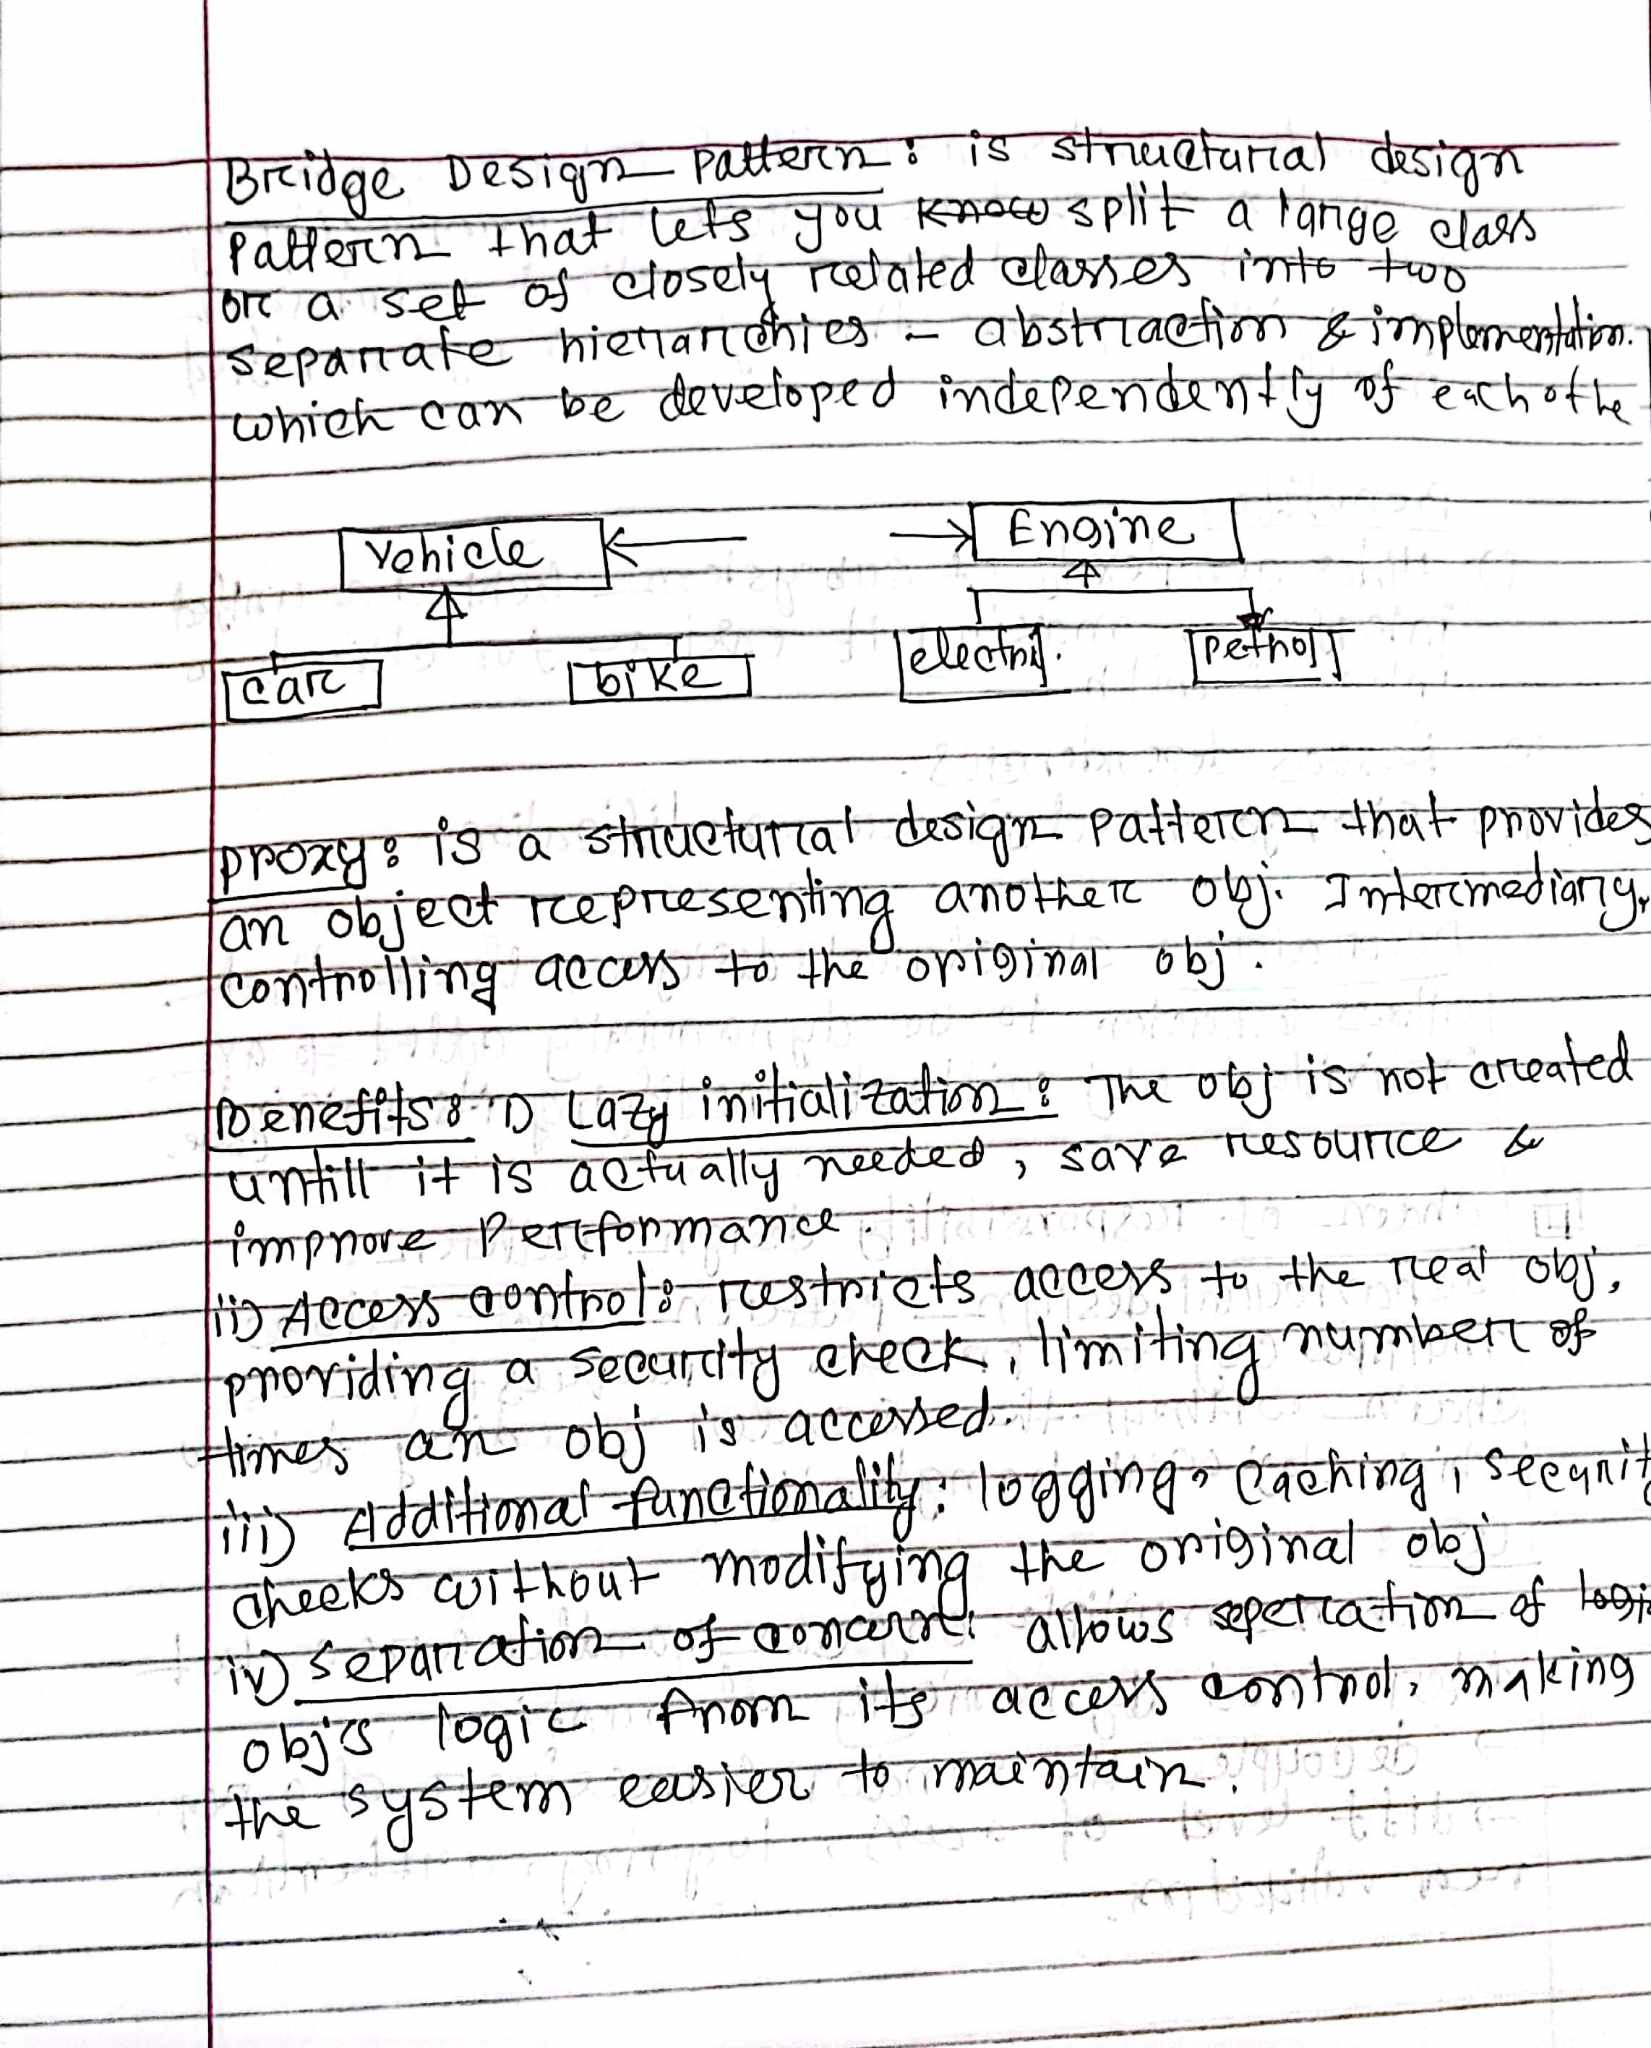 Bridge Design Pattern: is structural design
Pattern that lets you know split a large class
or a set of closely related classes into two
separate hierarchies - abstraction & implementation.
which can be developed independently of each othe
Vehicle
Engine
car
bike
electri.
Petrol
proxy: is a structural design Pattern that provides
an object representing another obj. Intermediary,
controlling access to the original obj.
Benefits: i) Lazy initialization: The obj is not created
untill it is actually needed, save resource &
improve Performance.
ii) Access control: restricts access to the real obj,
providing a security check, limiting number of
times an obj is accessed.
iii) Additional functionality: logging, Caching, securit
checks without modifying the original obj
iv) Separation of concern: allows seperation of logi
obj's logic from its access control, making
the system easier to maintain.